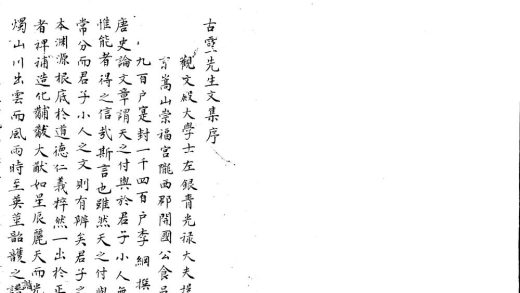 古靈先生文集序
觀文殿大學士左銀青光祿大夫提
嵩山崇福宮隴西郡開國公食邑
九百戶寔封一千四百戶李綱撰
唐史論文章謂天之付與於君子小人無
惟能者得之信哉斯言也雖然天之付與
常分而君子小人之文則有辨矣君子之
本淵源根底於道德仁義粹然一出於正
者裨補造化黼黻大猷如星辰麗天而光
燭山川出雲而風雨時至英莖韶頀之諧